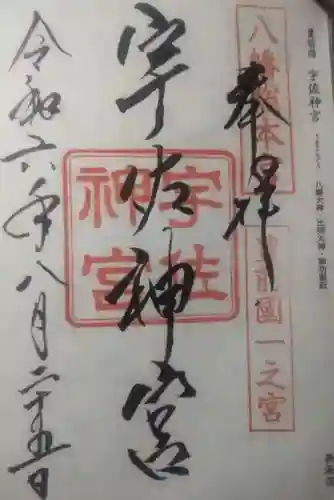 豊前国 宇佐神宮
八幡大神・比売大神・神功皇后
奉拝
八幡総本宮
豊前國一之宮
宇佐神宮
宇佐
神宮
令和六年八月二十五日